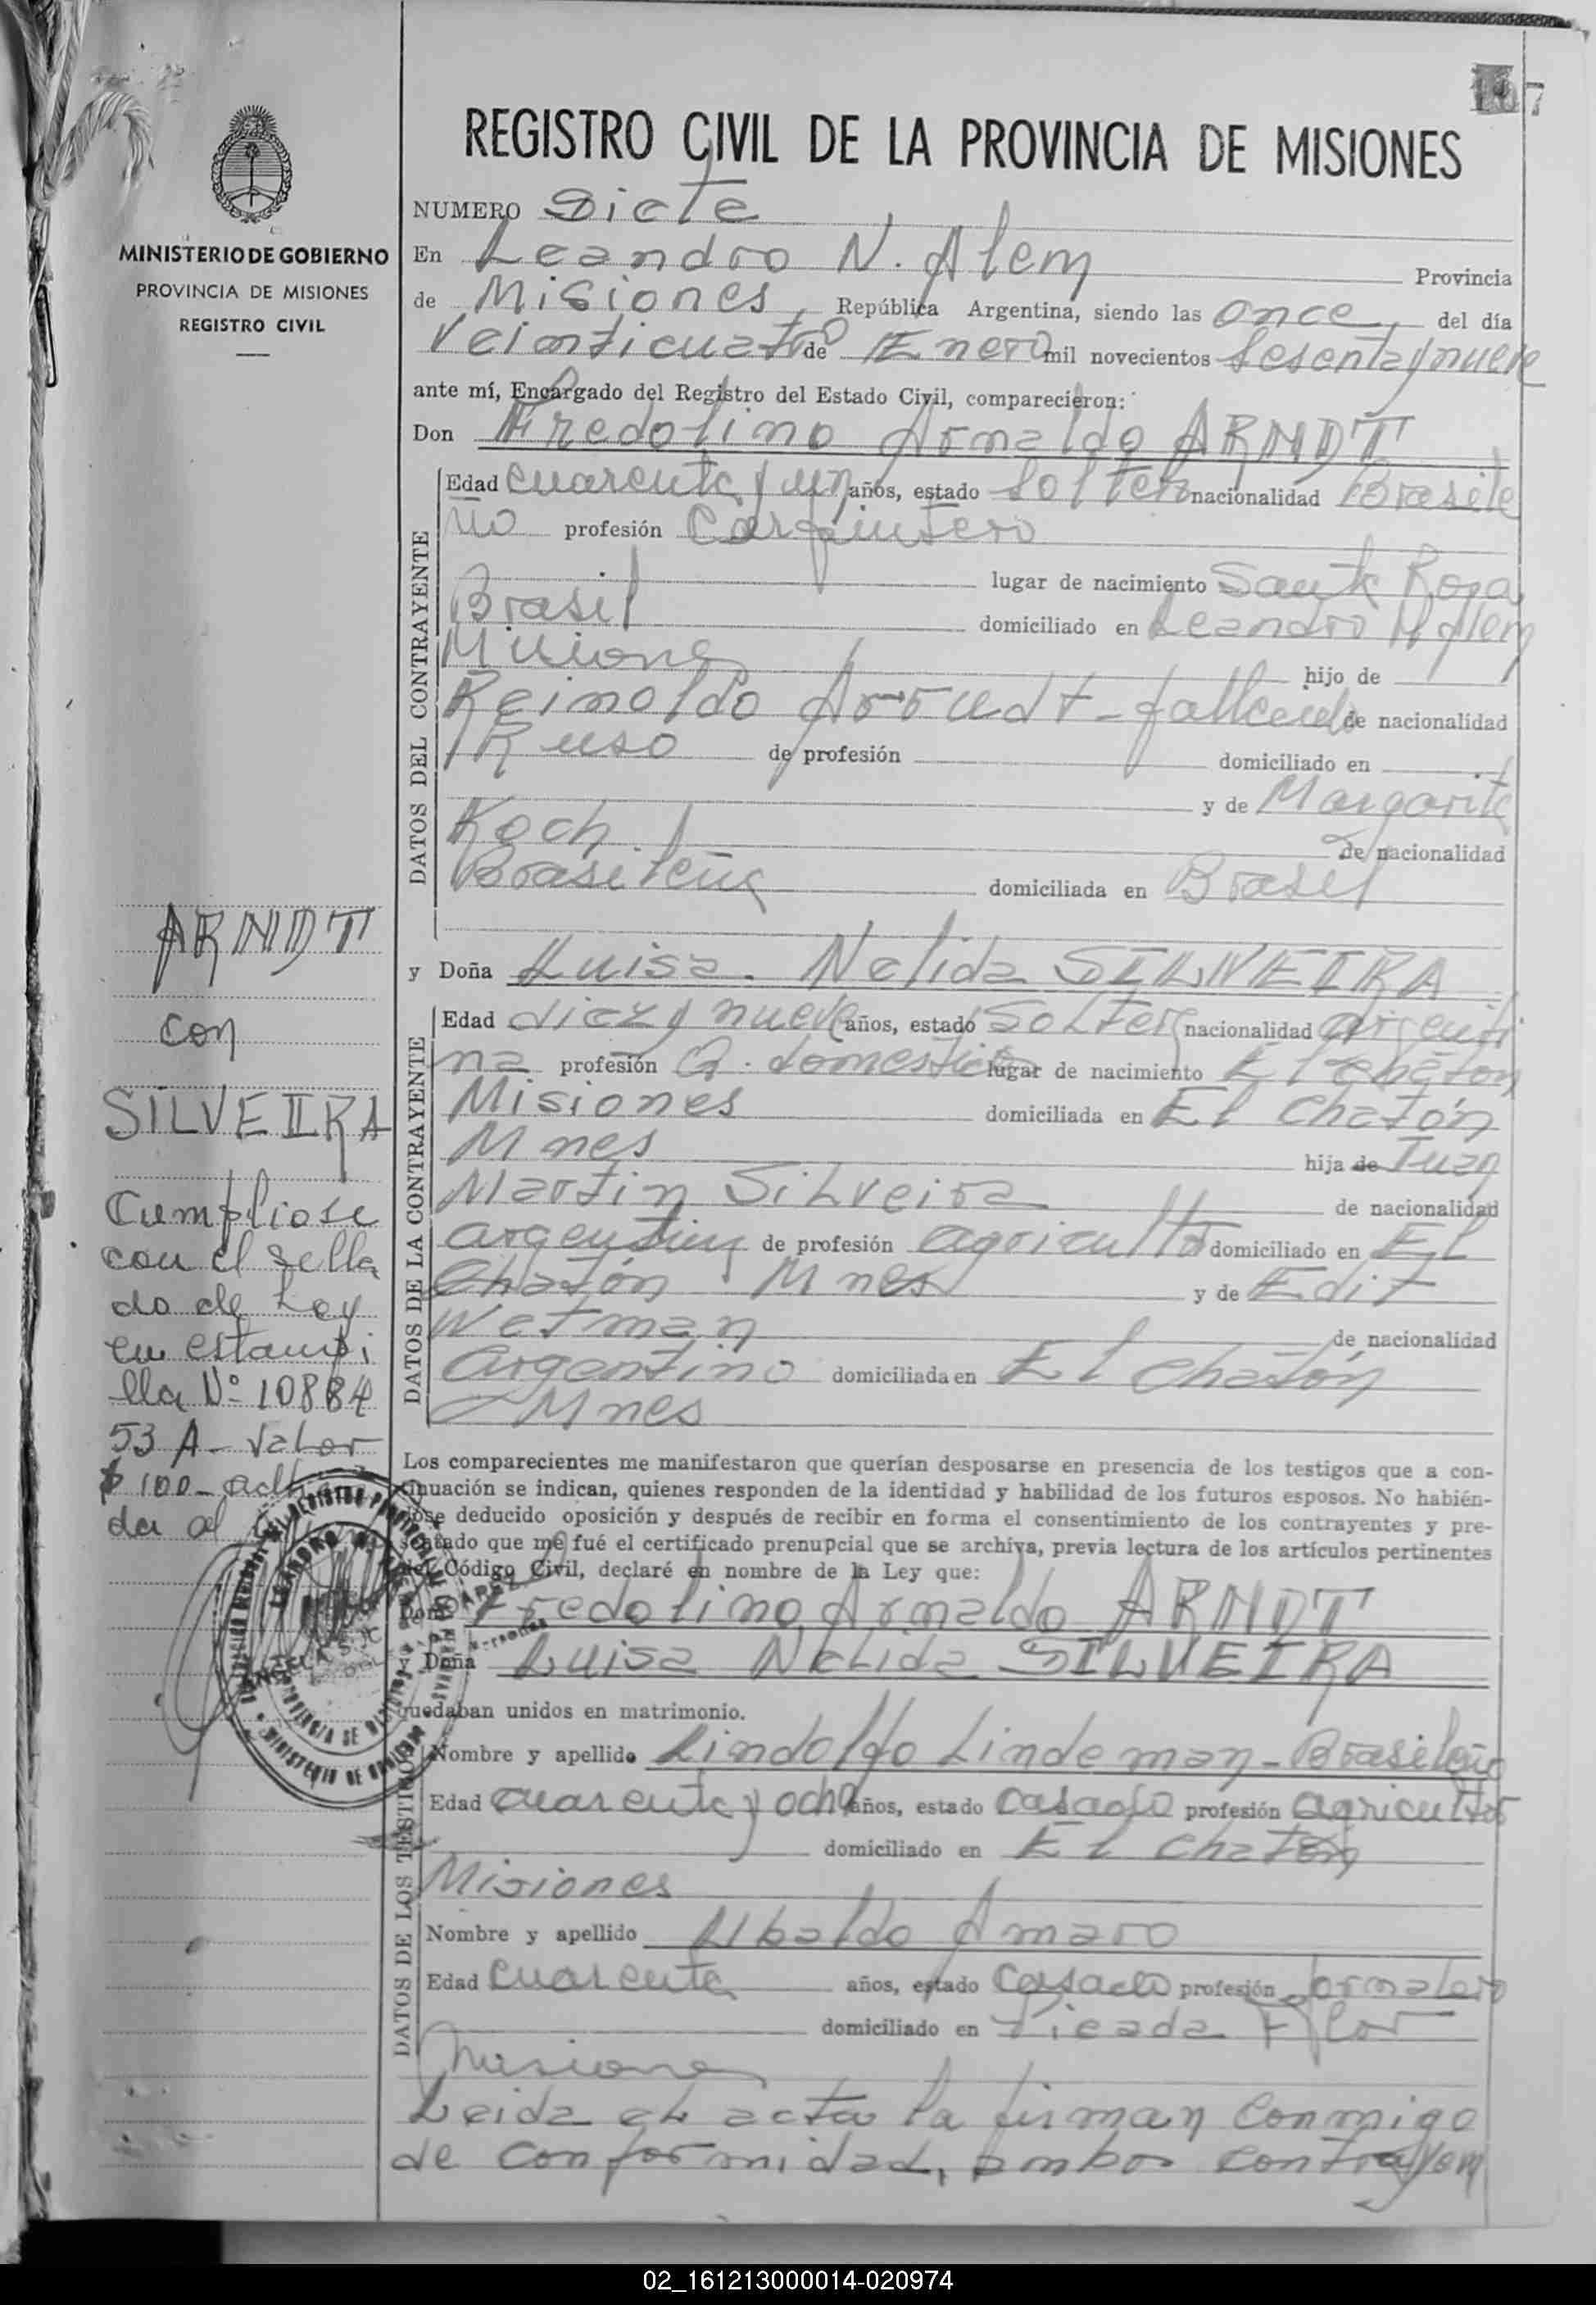 7
REGISTRO CIVIL DE LA PROVINCIA DE MISIONES
MINISTERIO DE GOBIERNO
PROVINCIA DE MISIONES
REGISTRO CIVIL
NUMERO Siete
En Leandro N. Alem Provincia
de Misiones, República Argentina, siendo las once, del día
Veinticuatro de Enero mil novecientos Sesenta y nueve
ante mí, Encargado del Registro del Estado Civil, comparecieron:
Don Fredolino Arnaldo ARNDT
DATOS DEL CONTRAYENTE
Edad cuarenta y un años, estado Soltero nacionalidad Brasile
ño profesión Carpintero
lugar de nacimiento Santa Rosa
Brasil domiciliado en Leandro N Alem
Misiones hijo de
Reinoldo Arndt - fallecido de nacionalidad
Ruso de profesión domiciliado en
y de Margarita
Koch de nacionalidad
Brasileña domiciliada en Brasil
y Doña Luisa Nelida SILVEIRA
DATOS DE LA CONTRAYENTE
Edad diez y nueve años, estado Soltera nacionalidad argenti
na profesión Q. domestico lugar de nacimiento El Chatón
Misiones domiciliada en El Chatón
Mnes hija de Juan
Martin Silveira de nacionalidad
argentino de profesión agricultor domiciliado en El
Chatón Mnes y de Edit
Wetman de nacionalidad
argentino domiciliada en El Chatón
Mnes
ARNDT
con
SILVEIRA
Cumpliose
con el sella
do de Ley
en estampi
lla Nº 10884
53 A - Valor
$ 100 - adhe
da al
Los comparecientes me manifestaron que querían desposarse en presencia de los testigos que a con-
tinuación se indican, quienes responden de la identidad y habilidad de los futuros esposos. No habién-
dose deducido oposición y después de recibir en forma el consentimiento de los contrayentes y pre-
sentado que me fué el certificado prenupcial que se archiva, previa lectura de los artículos pertinentes
del Código Civil, declaré en nombre de la Ley que:
Don Fredolino Arnaldo ARNDT
y Doña Luisa Nelida SILVEIRA
quedaban unidos en matrimonio.
DATOS DE LOS TESTIGOS
Nombre y apellido Lindolfo Lindeman - Brasileño
Edad cuarenta y ocho años, estado casado profesión agricultor
domiciliado en El Chatón
Misiones
Nombre y apellido Ubaldo Amaro
Edad cuarenta años, estado casado profesión Jornalero
domiciliado en Picada Flor
Misiones
Leida el acta la firman conmigo
de conformidad, ambos contrayen
02_161213000014-020974